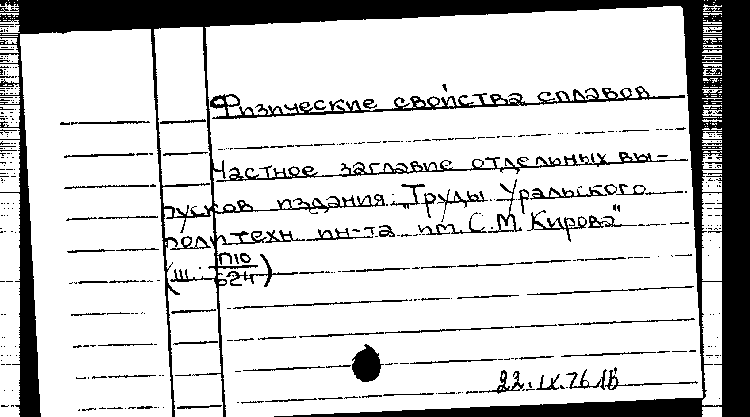 Физические свойства сплавов
Частное заглавие отдельных вы-
пусков издания: „Труды Уральского
политехн ин-та им. С. М. Кирова"
(Ш. П10/624)
22.IX.76